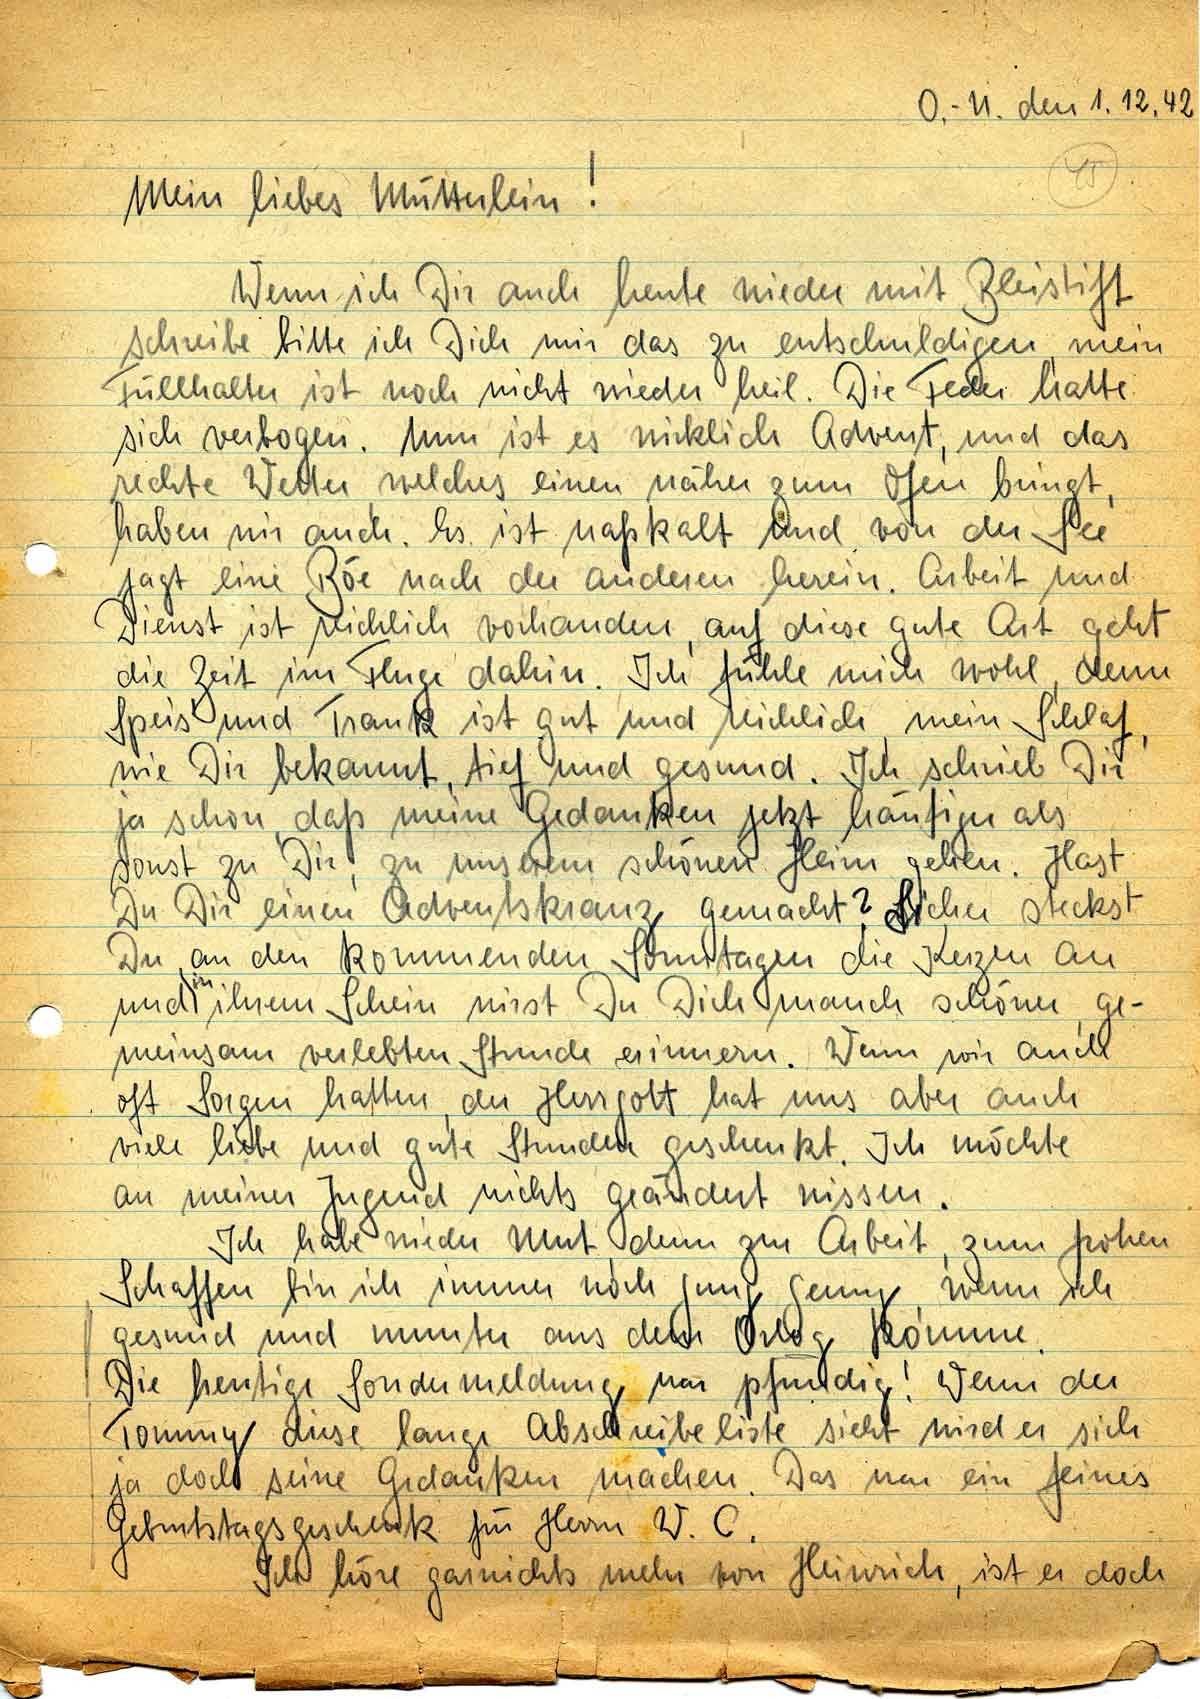 O.-U. den 1.12.42
45
Mein liebes Mütterlein!
Wenn ich Dir auch heute wieder mit Bleistift
schreibe bitte ich Dich mir das zu entschuldigen, mein
Füllhalter ist noch nicht wieder heil. Die Feder hatte
sich verbogen. Nun ist es wirklich Advent, und das
rechte Wetter welches einen näher zum Ofen bringt,
haben wir auch. Es ist naßkalt und von der See
jagt eine Böe nach der anderen herein. Arbeit und
Dienst ist reichlich vorhanden, auf diese gute Art geht
die Zeit im Fluge dahin. Ich fühle mich wohl, denn
Speis' und Trank ist gut und reichlich, mein Schlaf,
wie Dir bekannt, tief und gesund. Ich schrieb Dir
ja schon, daß meine Gedanken jetzt häufiger als
sonst zu Dir, zu unserem schönen Heim gehen. Hast
Du Dir einen Adventskranz gemacht? Sicher steckst
Du an den kommenden Sonntagen die Kerzen an
und in ihrem Schein wirst Du Dich manch schöner, ge-
meinsam verlebten Stunde erinnern. Wenn wir auch
oft Sorgen hatten, der Herrgott hat uns aber auch
viele liebe und gute Stunden geschenkt. Ich möchte
an meiner Jugend nichts geändert wissen.
Ich habe wieder Mut denn zur Arbeit, zum frohen
Schaffen bin ich immer noch jung genug, wenn ich
gesund und munter aus dem Orlog komme.
Die heutige Sondermeldung war pfundig! Wenn der
Tommy diese lange Abschreibeliste sieht wird er sich
ja doch seine Gedanken machen. Das war ein feines
Geburtstagsgeschenk für Herrn W. C.
Ich höre garnichts mehr von Heinrich, ist er doch